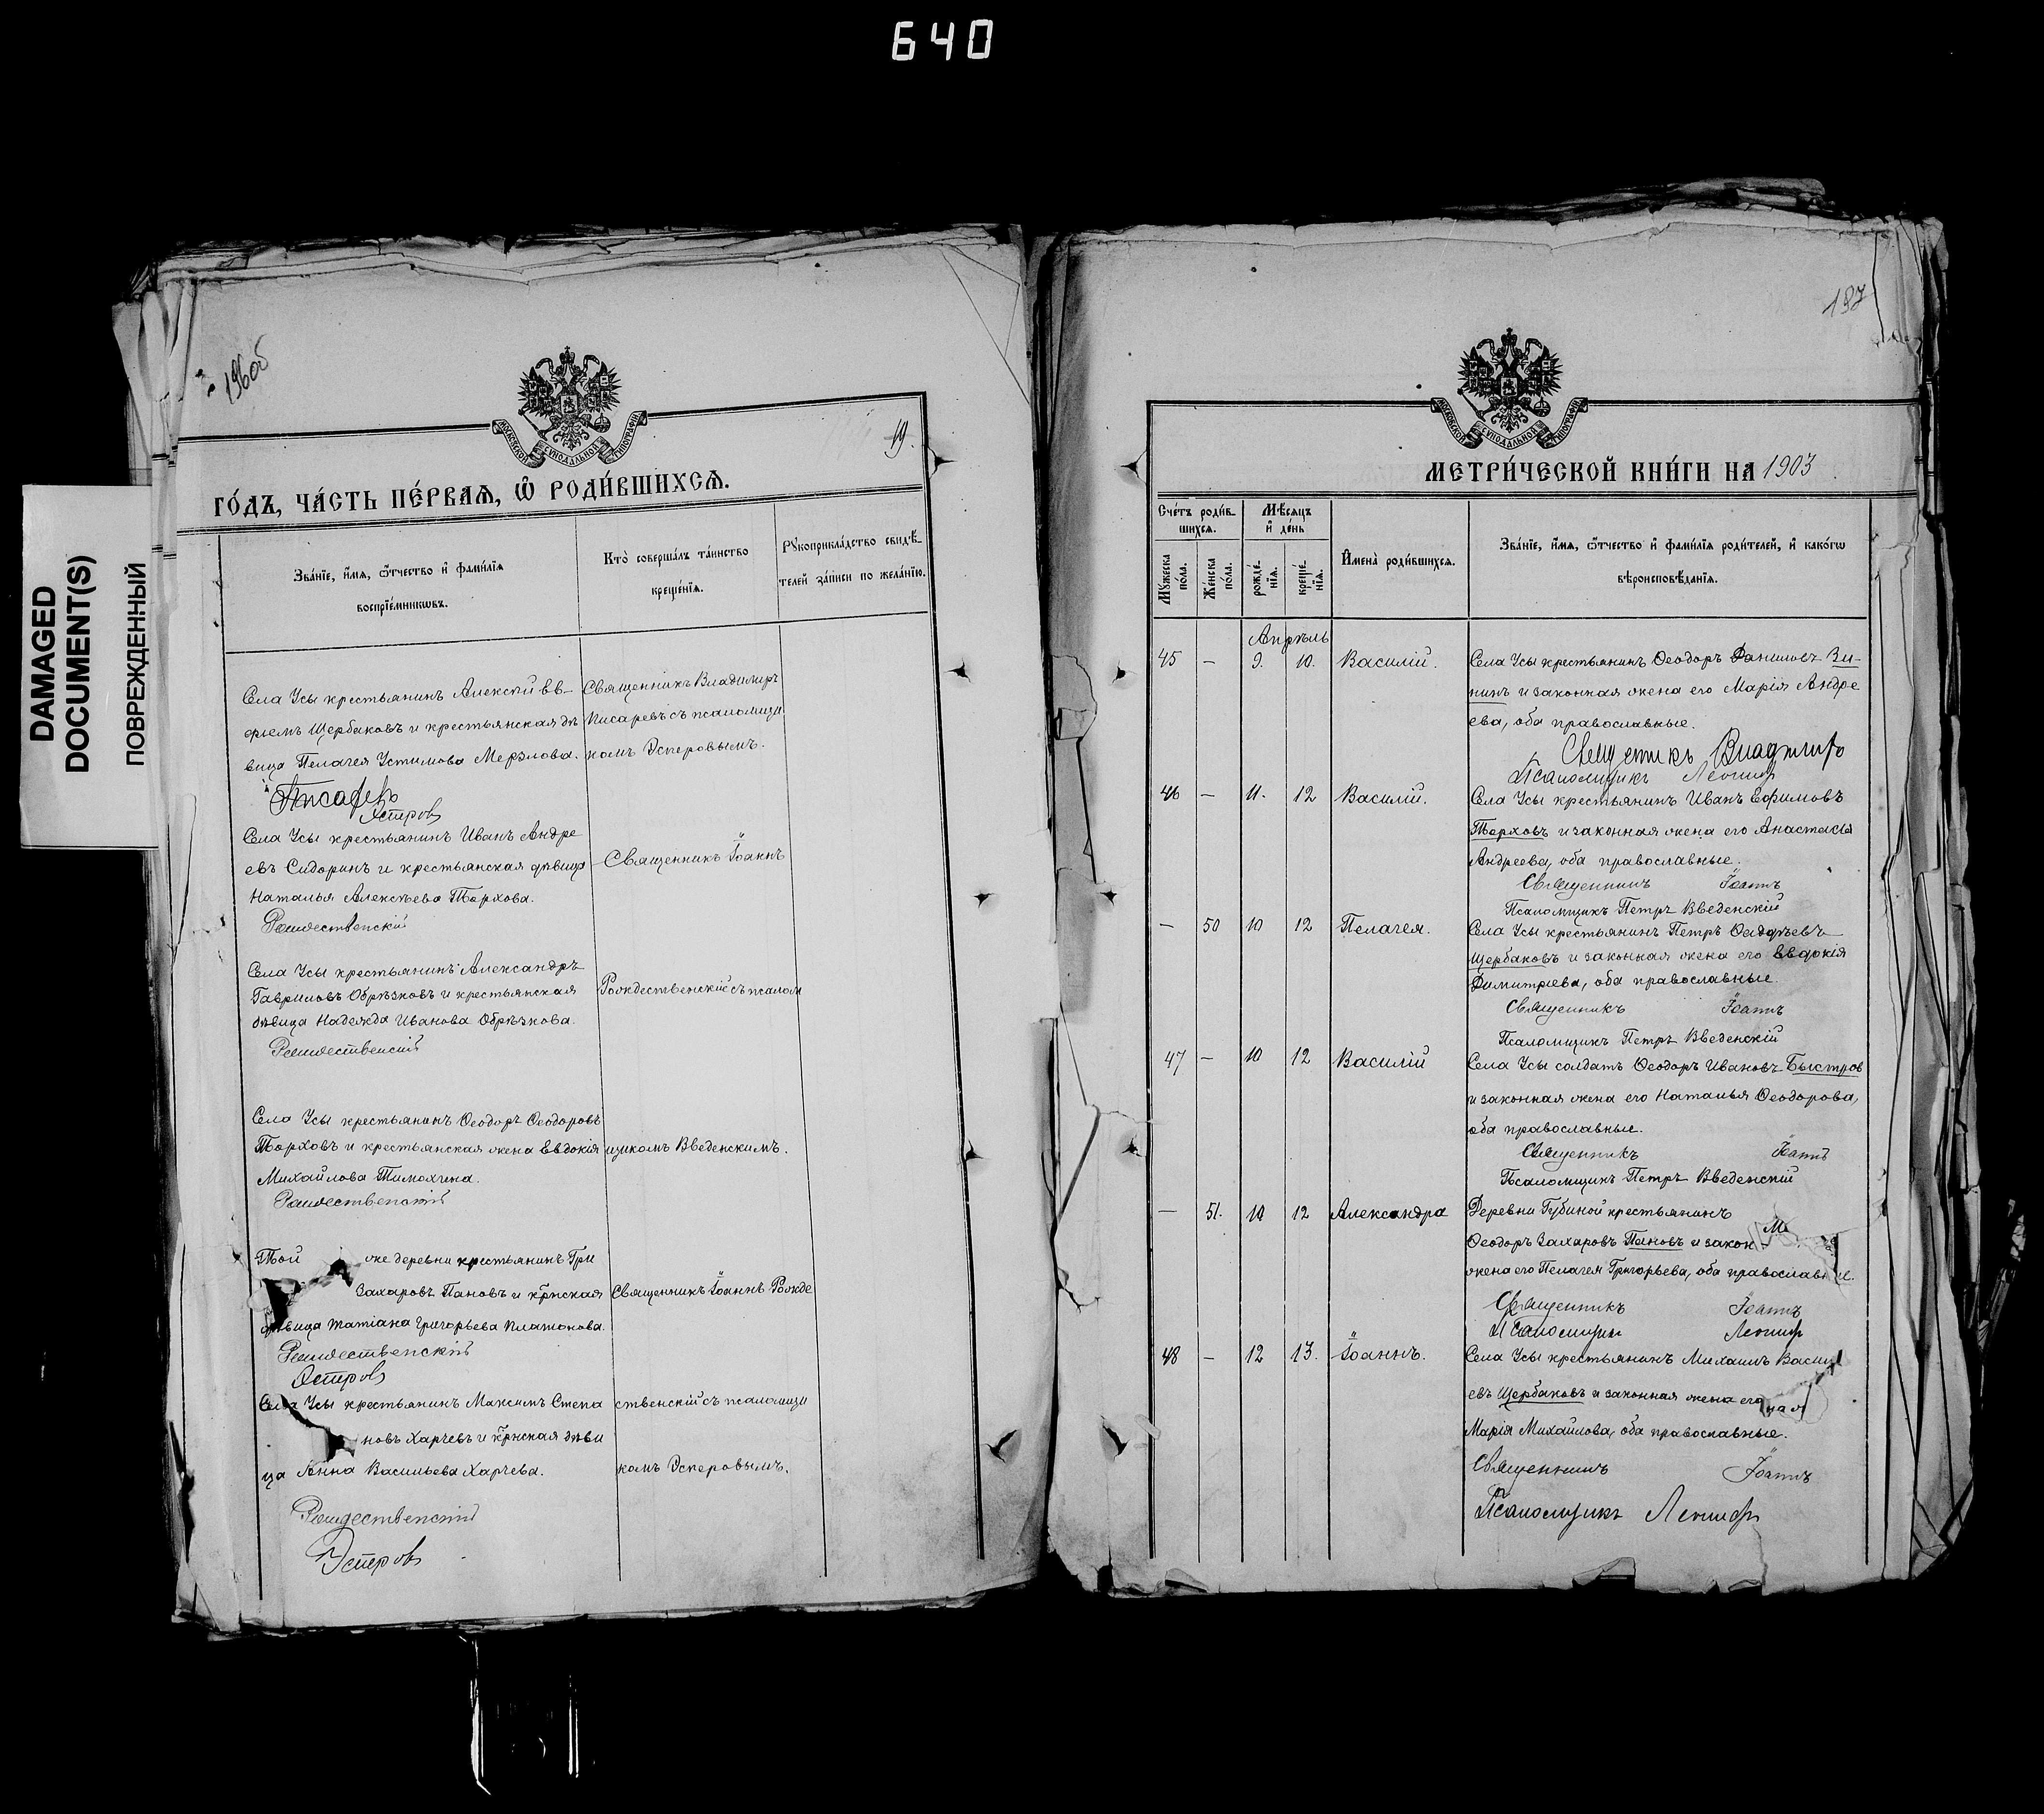 640
DAMAGED
DOCUMENT(S)
ПОВРЕЖДЕННЫЙ
196об
19.
МОСКОВСКОЙ СѴНОДАЛЬНОЙ ТИПОГРАФІИ
ГО́ДЪ, ЧА́СТЬ ПЕ́РВАѦ, Ѽ РОДИ́ВШИХСѦ.
Зва́нїе, и́мѧ, ѻ҆́тчество и҆ фамі́лїѧ
воспрїе́мникѡвъ.
Кто̀ соверша́лъ та́инство
креще́нїѧ.
Рꙋкоприкла́дство свидѣ́-
телей за́писи по жела́нїю.
Села Усы крестьянинъ Алексѣй Ев-
фіемъ Щербаковъ и крестьянская дѣ
вица Пелагея Устимова Мерзлова.
Священникъ Владимиръ
Писаревъ съ псаломщи
комъ Эсперовымъ.
Писаревъ
Эсперовъ
Села Усы крестьянинъ Иванъ Андре
евъ Сидоринъ и крестьянская дѣвица
Наталья Алексѣева Терхова.
Священникъ Іоаннъ
Рождественскій
Села Усы крестьянинъ Александръ
Гавриловъ Обрѣзковъ и крестьянская
дѣвица Надежда Иванова Обрѣзкова.
Рождественскій съ псалом
Рождественскій
Села Усы крестьянинъ Ѳеодоръ Ѳеодоровъ
Терховъ и крестьянская жена Евдокія
Михайлова Тимохина.
щикомъ Введенскимъ.
Рождественскій
Той же деревни крестьянинъ Гри
Захаровъ Пановъ и кр̃нская
дѣвица Татіана Григорьева Платонова.
Священникъ Іоаннъ Рожде
Рождественскій
Эсперовъ
Села Усы крестьянинъ Максимъ Степа
новъ Харчевъ и кр̃нская дѣви
ца Анна Васильева Харчева.
ственскій съ псаломщи
комъ Эсперовымъ.
Рождественскій
Эсперовъ
197
МОСКОВСКОЙ СѴНОДАЛЬНОЙ ТИПОГРАФІИ
МЕТРИ́ЧЕСКОЙ КНИ́ГИ НА 1903
Сче́тъ роди́в-
шихсѧ.
Мꙋ́жеска
по́ла.
Же́нска
по́ла.
Мѣ́сѧцъ
и҆ де́нь
рожде́-
нїѧ.
креще́-
нїѧ.
И҆мена̀ роди́вшихсѧ.
Зва́нїе, и́мѧ, ѻ҆́тчество и҆ фамі́лїѧ роди́телей, и҆ како́гѡ
вѣроисповѣ́данїѧ.
Апрѣль
45 — 9. 10. Василій. Села Усы крестьянинъ Ѳеодоръ Даниловъ Зи-
нинъ и законная жена его Марія Андре
ева, оба православные.
Священникъ Владимиръ
Псаломщикъ Леонидъ
46 — 11. 12 Василій. Села Усы крестьянинъ Иванъ Ефимовъ
Терховъ и законная жена его Анастасія
Андреева, оба православные.
Священникъ Іоаннъ
Псаломщикъ Петръ Введенскій
— 50 10 12 Пелагея. Села Усы крестьянинъ Петръ Ѳеодоръевъ
Щербаковъ и законная жена его Евдокія
Димитріева, оба православные.
Священникъ Іоаннъ
Псаломщикъ Петръ Введенскій
47 — 10 12 Василій Села Усы солдатъ Ѳеодоръ Ивановъ Быстров
и законная жена его Наталья Ѳеодорова,
оба православные.
Священникъ Іоаннъ
Псаломщикъ Петръ Введенскій
— 51. 10 12 Александра Деревни Губиной крестьянинъ
Ѳеодоръ Захаровъ Пановъ и закон-
жена его Пелагея Григорьева, оба православные.
Священникъ Іоаннъ
Псаломщикъ Леонидъ
48 — 12 13. Іоаннъ. Села Усы крестьянинъ Михаилъ Васил
евъ Щербаковъ и законная жена его
Марія Михайлова, оба православные.
Священникъ Іоаннъ
Псаломщикъ Леонидъ